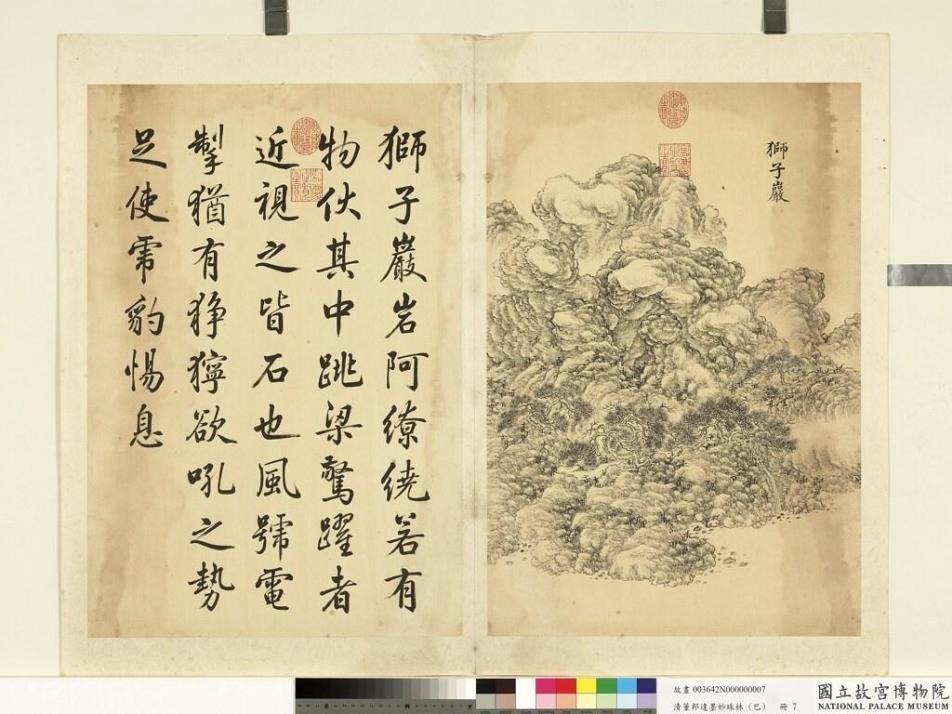 獅子巖
獅子巖岩阿繚繞若有
物伏其中跳梁驚躍者
近視之皆石也風號電
掣猶有猙獰欲吼之勢
足使虎豹惕息
故畫 003642N000000007
清董邦達墨妙珠林(巳) 冊 7
國立故宮博物院
NATIONAL PALACE MUSEUM